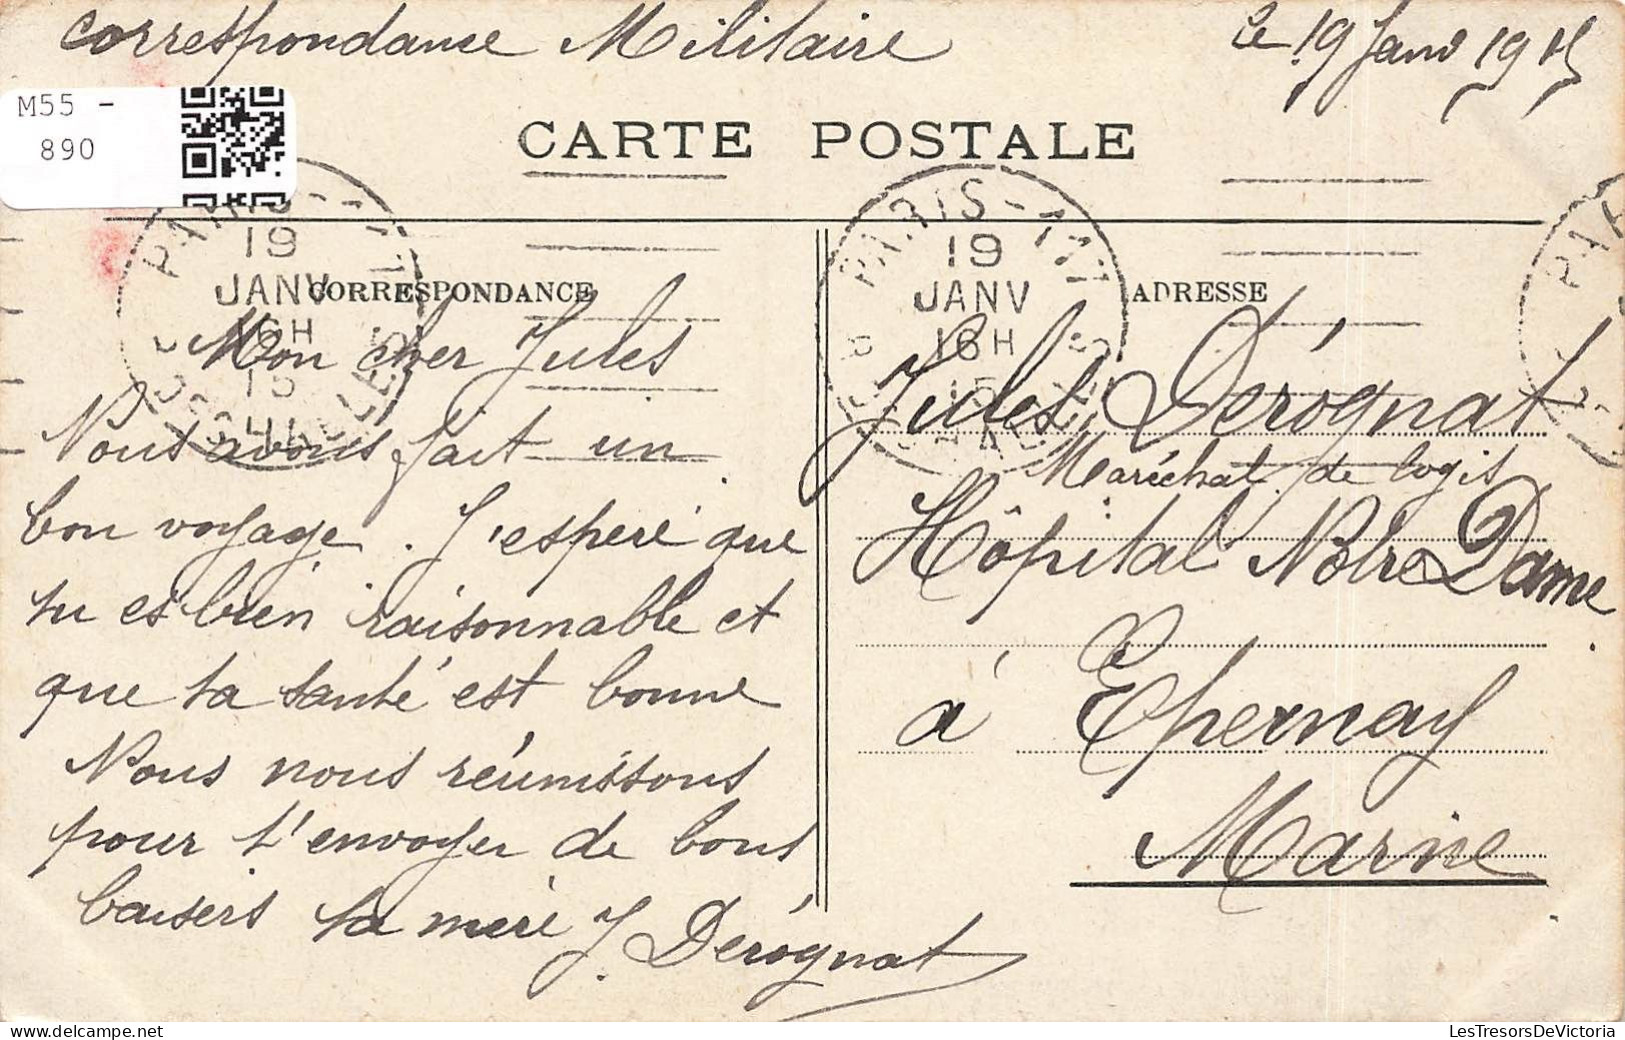 Correspondance Militaire
Le 19 Janv 1915
M55 -
890
CARTE POSTALE
PARIS
19
JANV
16H
15
PARIS - 111
19
JANV
16H
15
CORRESPONDANCE
Mon cher Jules
Nous avons fait un
bon voyage. J'esperé que
tu es bien raisonnable et
que ta santé est bonne
Nous nous réunissons
pour t'envoyer de bons
baisers ta mère J. Dérognat
ADRESSE
Jules Dérognat
Maréchal de logis
Hôpital Notre Dame
à Epernay
Marne
LesTresorsDeVictoria